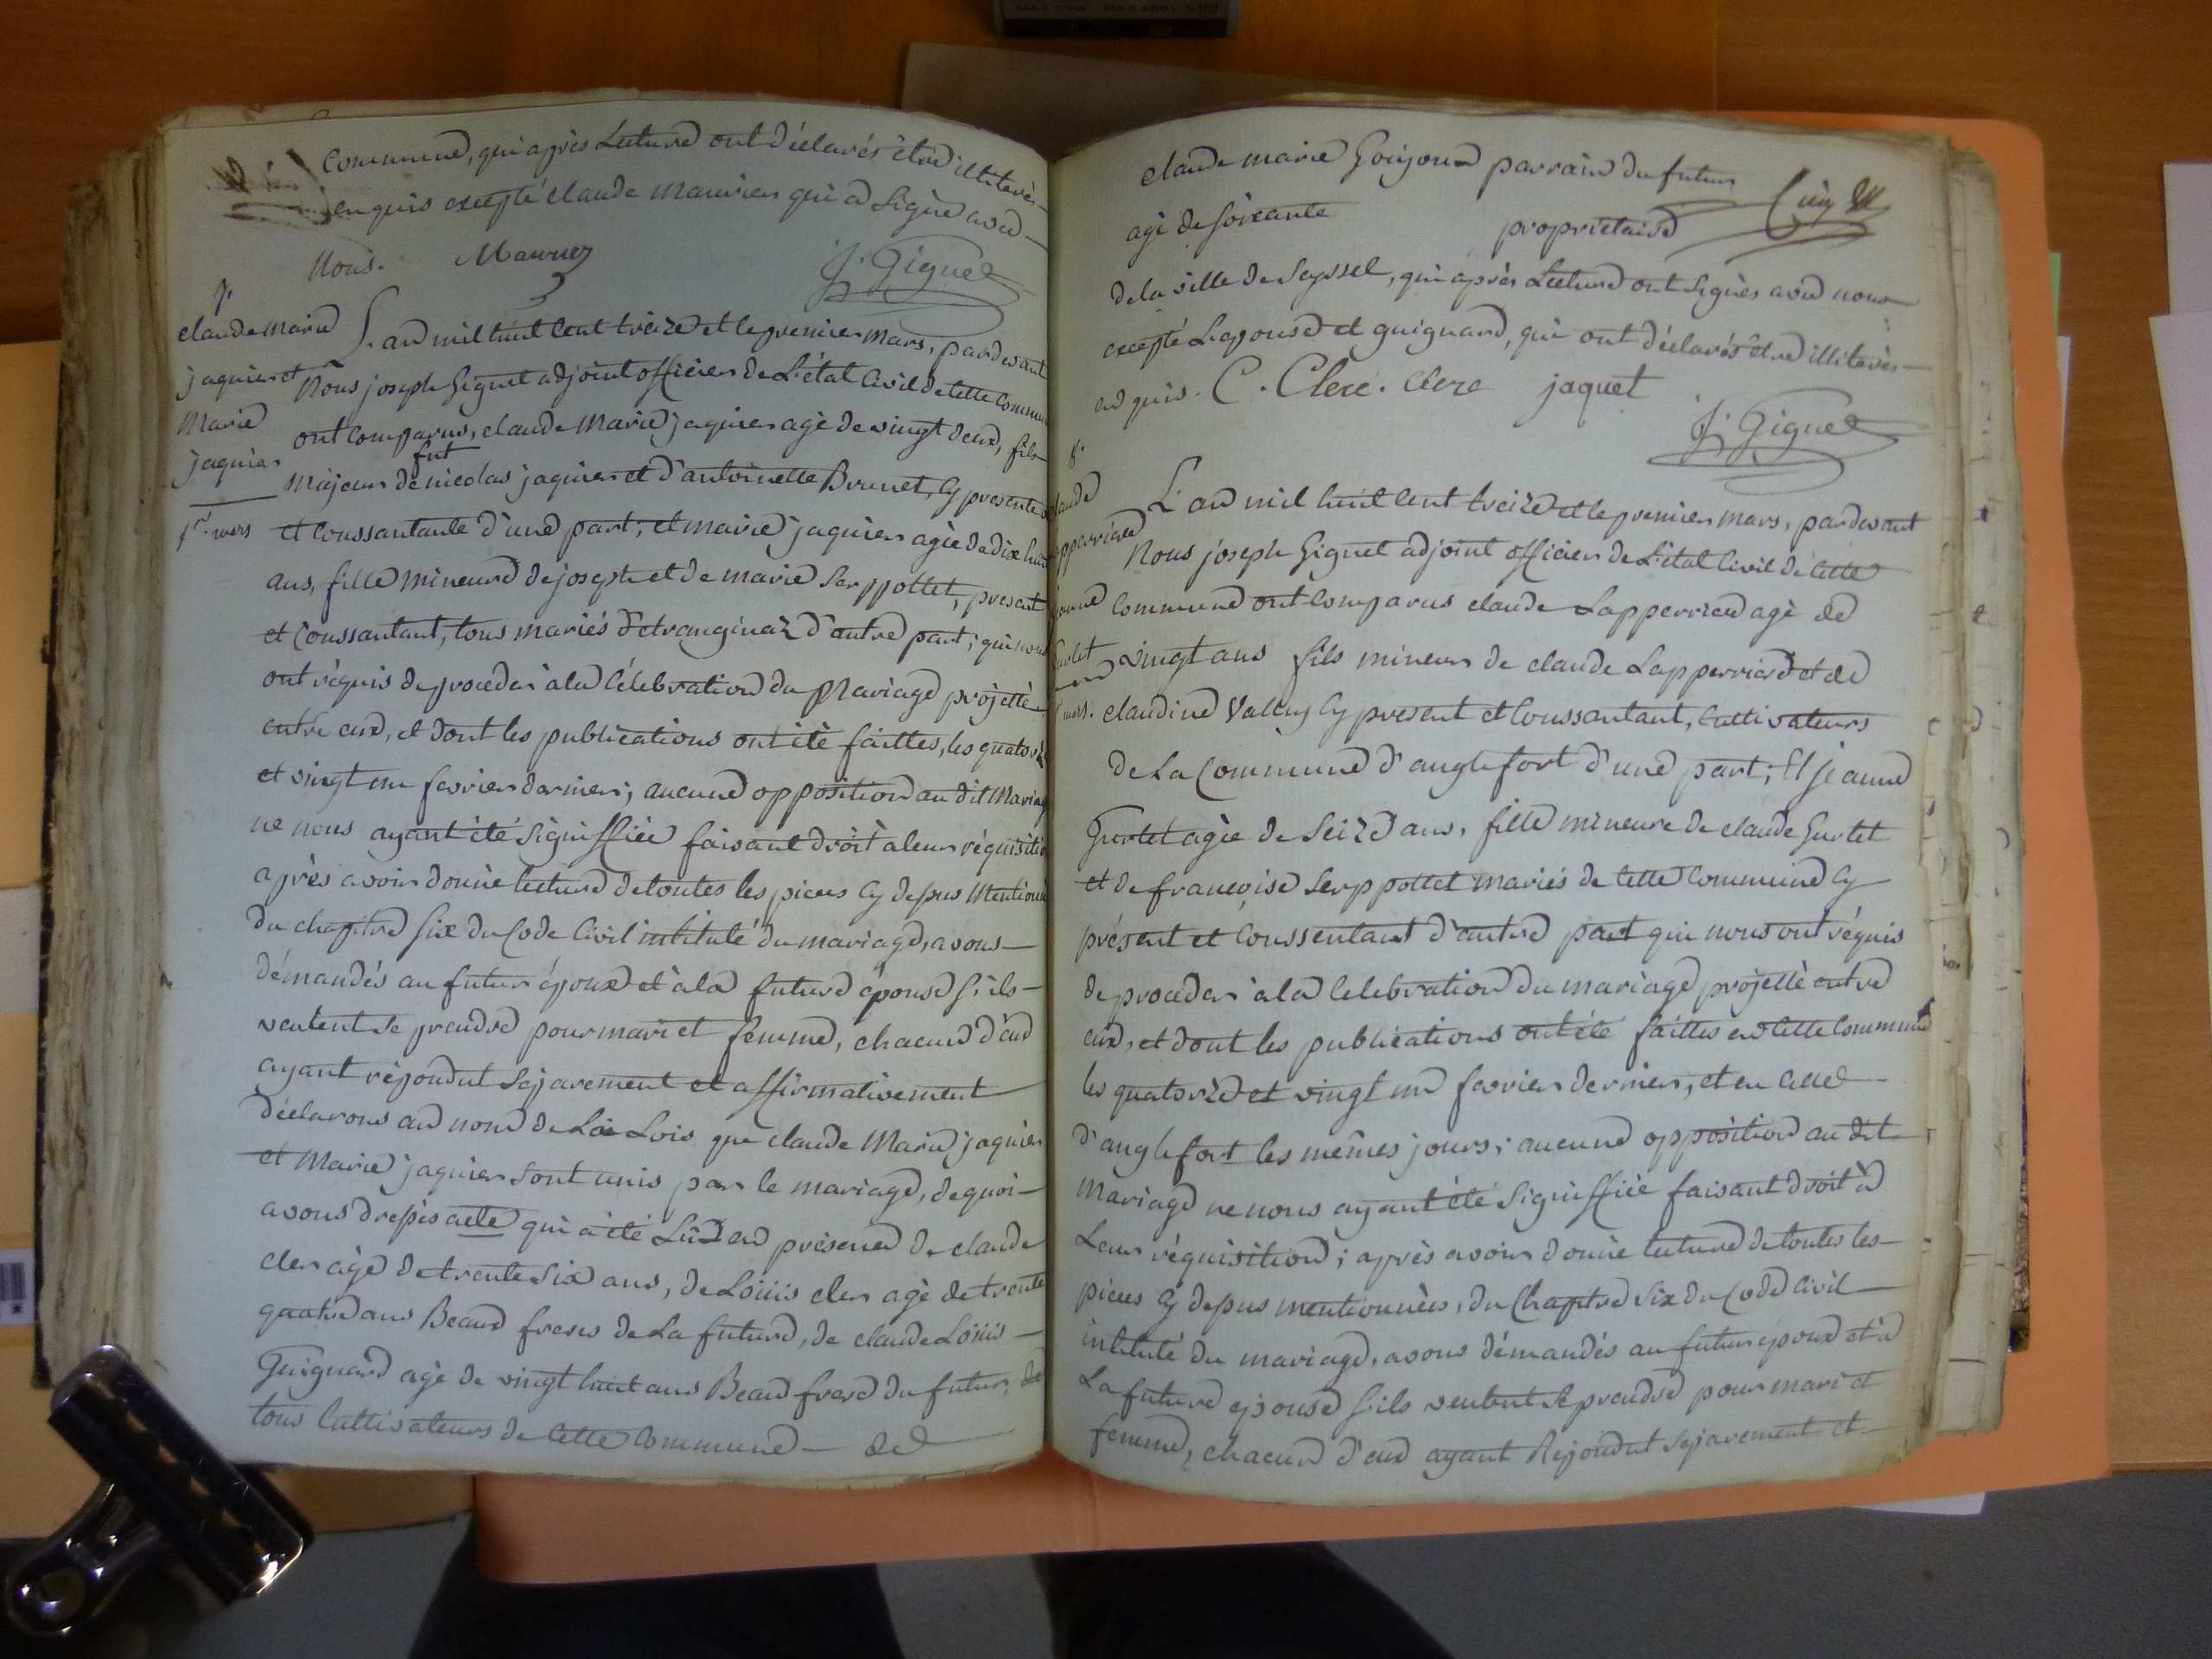 Commune, qui après Lecture ont déclarés être illiterés
enquis excepté claude Maurier qui a Signé avec
Nous. Maurier J. Giguet
7.
claude Marie
jaquier et
Marie
jaquier
1er. mars
L'an mil huit Cent treize et le premier Mars, pardevant
Nous joseph Giguet adjoint officier de L'état Civil de Cette Commune
ont Comparus, claude Marie jaquier agé de vingt deux, fils
Majeur de fut nicolas jaquier et d'antoinette Brunet, Cy presente
et Conssantante d'une part; et marie jaquier agée de dix huit
ans, fille mineure de joseph et de marie Serppollet, present
et Conssantant, tous mariés d'etranginaz d'autre part; qui nous
ont réquis de proceder à la Célebration du Mariage projetté
entre eux, et dont les publications ont été faittes, les quatorze
et vingt un fevrier dernier; aucune opposition au dit Mariage
ne nous ayant été Signiffiée faisant droit a leur réquisition
après avoir donné lecture de toutes les pieces Cy dessus Mentionné
du chapitre Six du Code Civil intitulé du mariage, avons
démandés au futur époux et à la future épouse S'ils
veulent Se prendre pour mari et femme, chacun d'eux
ayant répondut Séparement et affirmativement
déclarons au nom de La Lois que claude Marie jaquier
et Marie jaquier Sont unis par le mariage, de quoi
avons dressés acte qui a été Lû en présence de claude
cler agé de trente Six ans, de Loüis cler agé de trente
quatre ans Beaux freres de La future, de claude Loüis
Guignard agé de vingt huit ans Beau frere du futur,
tous Cultivateurs de Cette Commune de
claude marie Goujon parrain du futur
agé de Soixante propriétaire
de la ville de Seyssel, qui après Lecture ont Signés avec nous
excepté L'epouse et guignard, qui ont déclarés être illiterés
en quis. C. Clerc. Clerc jaquet
J. Giguet
8.
claude
Lapperriere
jeanne
Gurlet
1er mars.
L'an mil huit Cent treize et le premier mars, pardevant
Nous joseph Giguet adjoint officier de L'état Civil de Cette
Commune ont Comparus claude Lapperriere agé de
vingt ans fils mineur de claude Lapperriere et de
claudine Vallet Cy present et Conssantant, Cultivateurs
de La Commune d'anglefort d'une part; Et jeanne
Gurlet agée de Seize ans, fille mineure de claude Gurlet
et de françoise Serppollet mariés de Cette Commune Cy
présent et Conssentant d'autre part qui nous ont réquis
de proceder à la Celebration du mariage projetté entre
eux, et dont les publications ont été faittes en Cette Commune
les quatorze et vingt un fevrier dernier, et en Celle
d'anglefort les mêmes jours; aucune opposition au dit
Mariage ne nous ayant été Signiffiée faisant droit à
Leur réquisition; après avoir donné lecture de toutes les
pieces Cy dessus mentionnées, du Chapitre Six du Code Civil
intitulé du mariage, avons démandés au futur époux et à
La future epouse S'ils veulent Se prendre pour mari et
femme, chacun d'eux ayant Répondut Séparement et